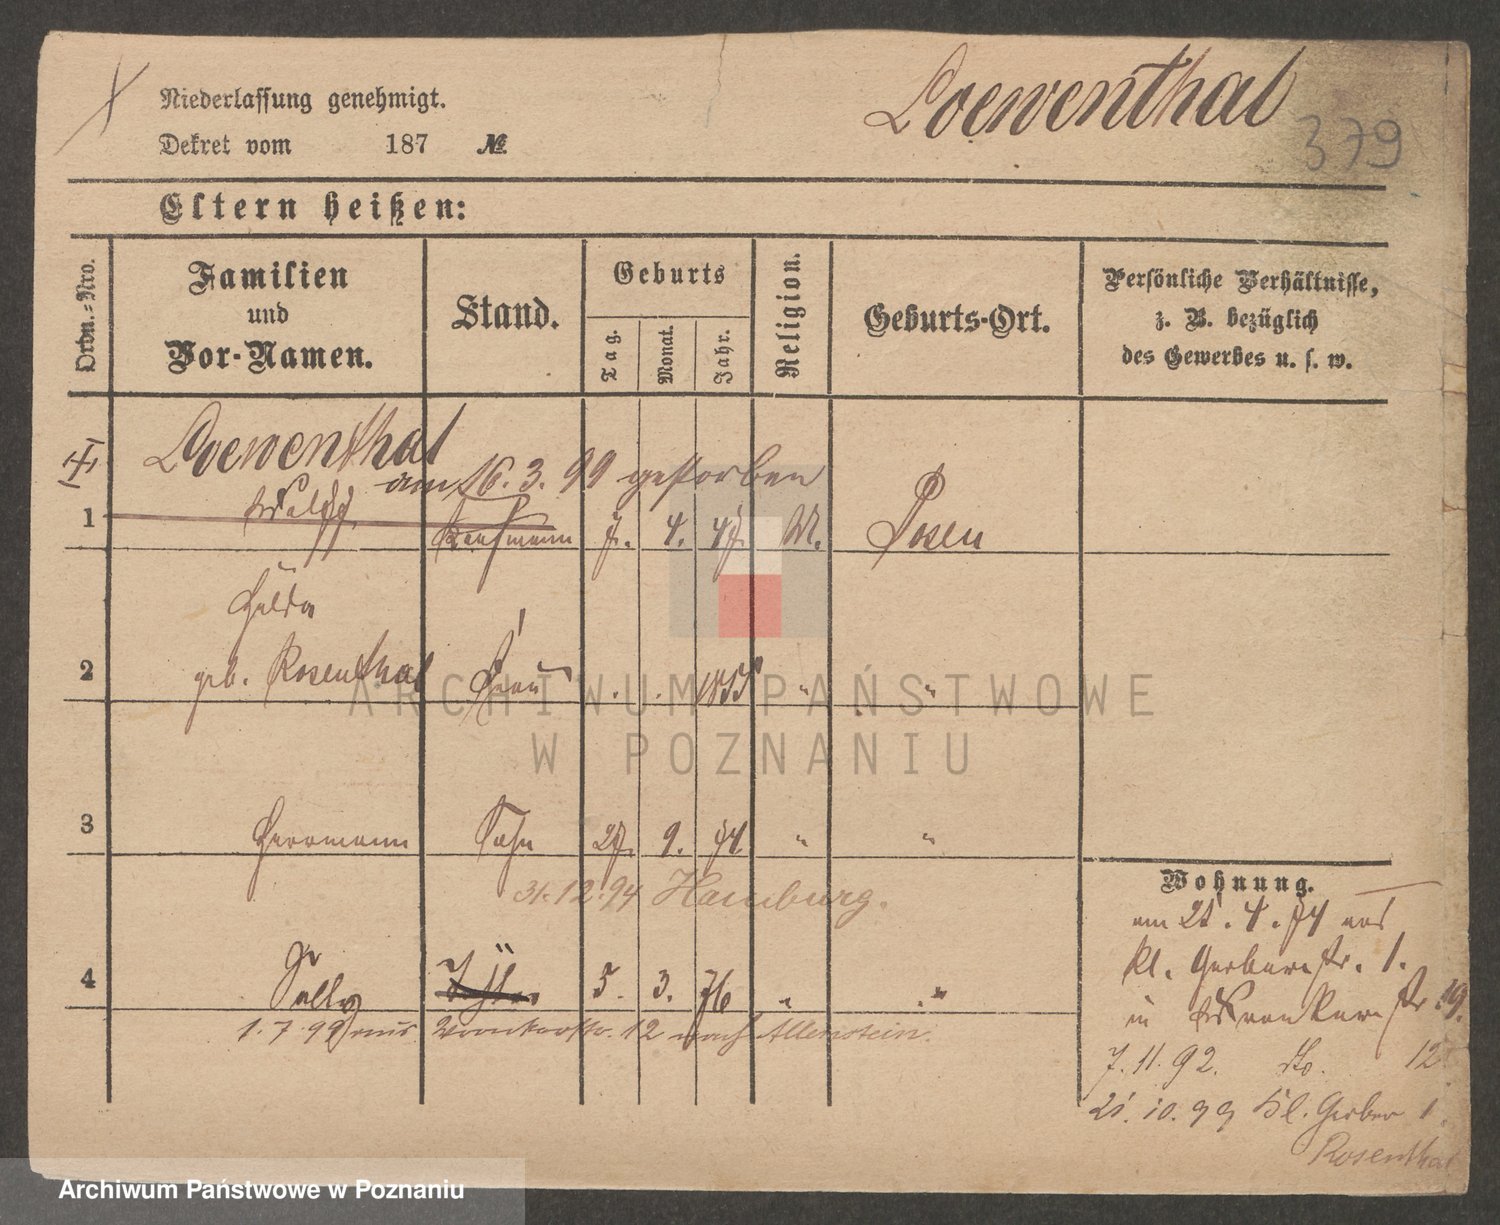 Niederlassung genehmigt.
Loewenthal
379
Dekret vom 187 №
Eltern heißen:
Ordn.-Nro.
Familien
und
Vor-Namen.
Stand.
Geburts
Tag.
Monat.
Jahr.
Religion.
Geburts-Ort.
Persönliche Verhältnisse,
z. B. bezüglich
des Gewerbes u. s. w.
Loewenthal
am 16.3.99 gestorben
1 Wolff Kaufmann 7. 4. 47. M. Posen
Hulda
2 geb. Rosenthal Frau . . 1855 " "
3 Herrmann Sohn 27. 9. 74. " "
31.12.94 Hamburg.
4 Sally 5. 3. 76 " "
1.7.99 aus Wronkerstr. 12 nach Allenstein.
Wohnung.
am 21.4.74 aus
Kl. Gerberstr. 1.
in Wronkerstr. 19.
7.11.92. do. 12
21.10.99 Kl. Gerber 1.
Rosenthal
ARCHIWUM PAŃSTWOWE
W POZNANIU
Archiwum Państwowe w Poznaniu